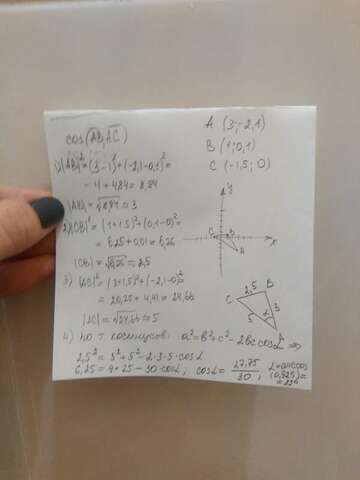 cos(AB, AC)
A (3; -2,1)
B (1; 0,1)
C (-1,5; 0)
1) |AB|² = (3-1)² + (-2,1-0,1)² =
= 4 + 4,84 = 8,84
|AB| = √8,84 ≈ 3
2) |CB|² = (1+1,5)² + (0,1-0)² =
= 6,25 + 0,01 = 6,26
|CB| = √6,26 ≈ 2,5
3) |AC|² = (3+1,5)² + (-2,1-0)²
= 20,25 + 4,41 = 24,66
|AC| = √24,66 ≈ 5
y
x
C
B
A
C
2,5
B
3
5
α
A
4) по т. косинусов: a² = b² + c² - 2bc cosα ⇒
2,5² = 3² + 5² - 2·3·5·cosα
6,25 = 9+25 - 30cosα; cosα = 27,75/30; α = arccos
(0,925) =